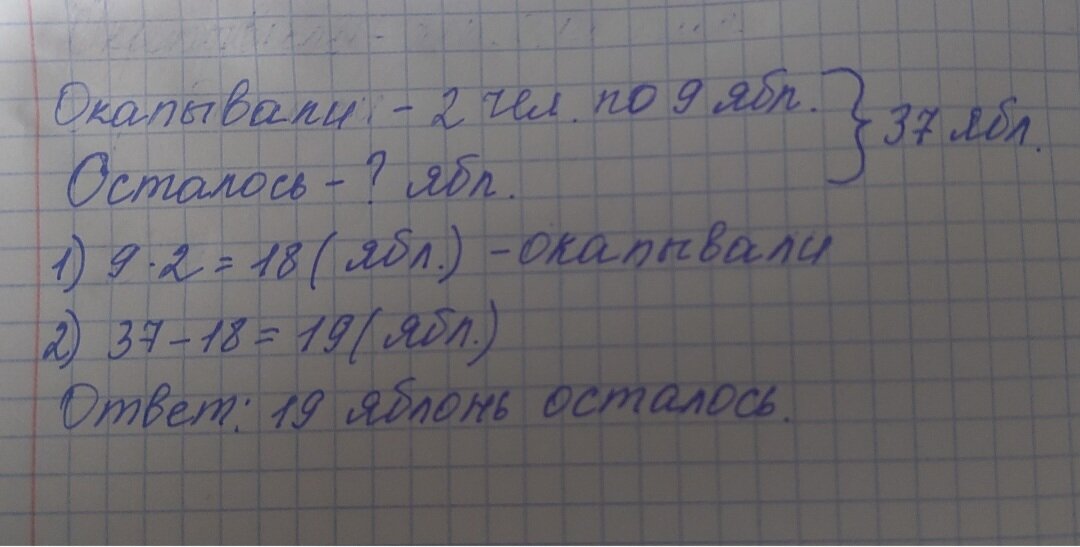 Окапывали - 2 чел. по 9 ябл. } 37 ябл.
Осталось - ? ябл.
1) 9·2=18(ябл.) - окапывали
2) 37-18=19(ябл.)
Ответ: 19 яблонь осталось.